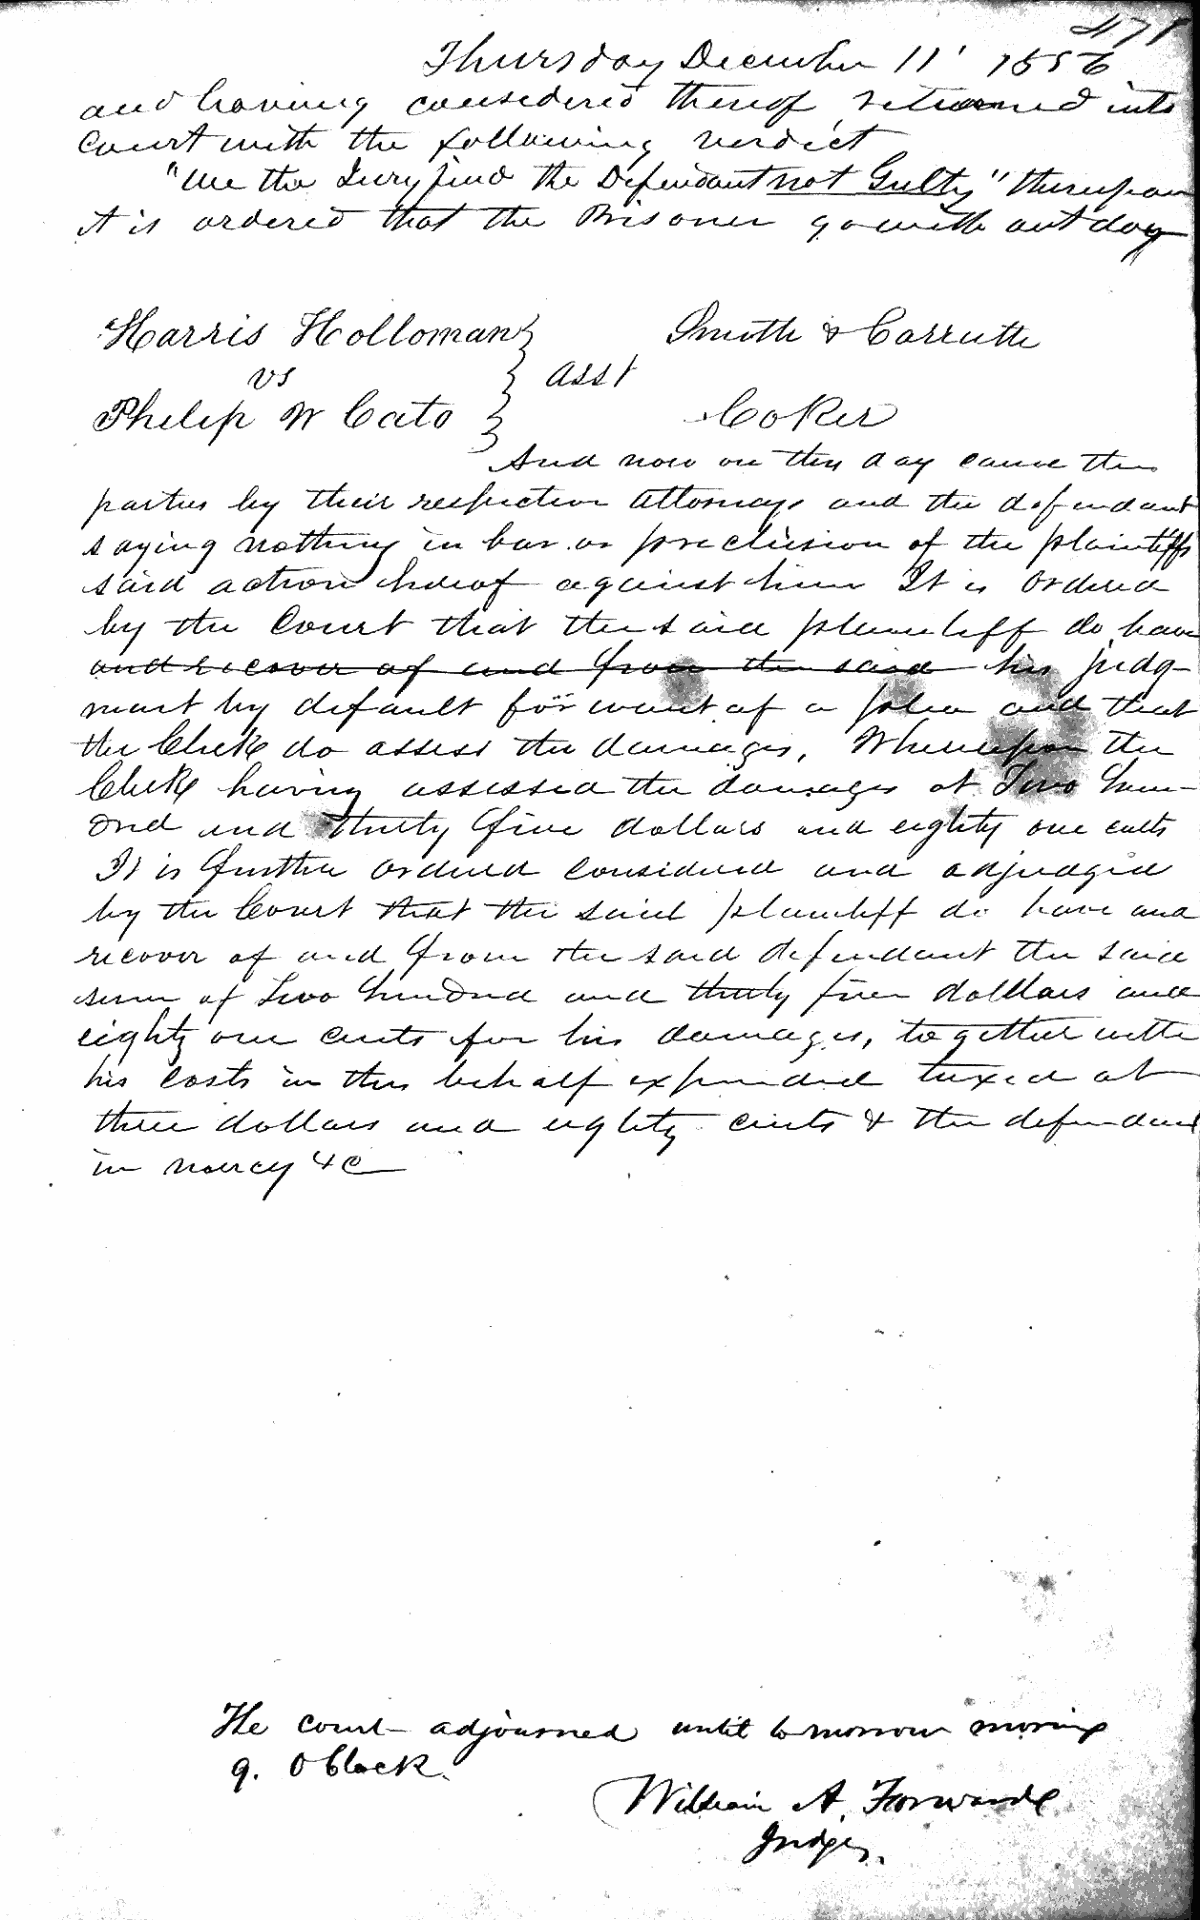 471
Thursday December 11' 1856
and having considered thereof returned into
Court with the following verdict
"We the Jury find the Defendant not Gulty" thereupon
it is ordered that the Prisoner go with out day
Harris Holloman } Smith & Carruth
vs } asst
Philip W Cato } Coker
And now on this day came the
parties by their respective attorneys and the defendant
saying nothing in bar or preclusion of the plaintiffs
said action hereof against him It is ordered
by the Court that the said plaintiff do have
and recover of and from the said his judg-
ment by default for want of a plea and that
the Clerk do assess the damages, Whereupon the
Clerk having assessed the damages at Two hun-
dred and thirty five dollars and eighty one cents
It is further ordered considered and adjudged
by the Court that the said plaintiff do have and
recover of and from the said defendant the said
sum of Two hundred and thirty five dolllars and
eighty one cents for his damages, together with
his costs in this behalf expended taxed at
three dollars and eighty cents & the defendant
in mercy &c
The court adjourned until tomorrow morning
9. O Clock.
William A. Forward
Judge.